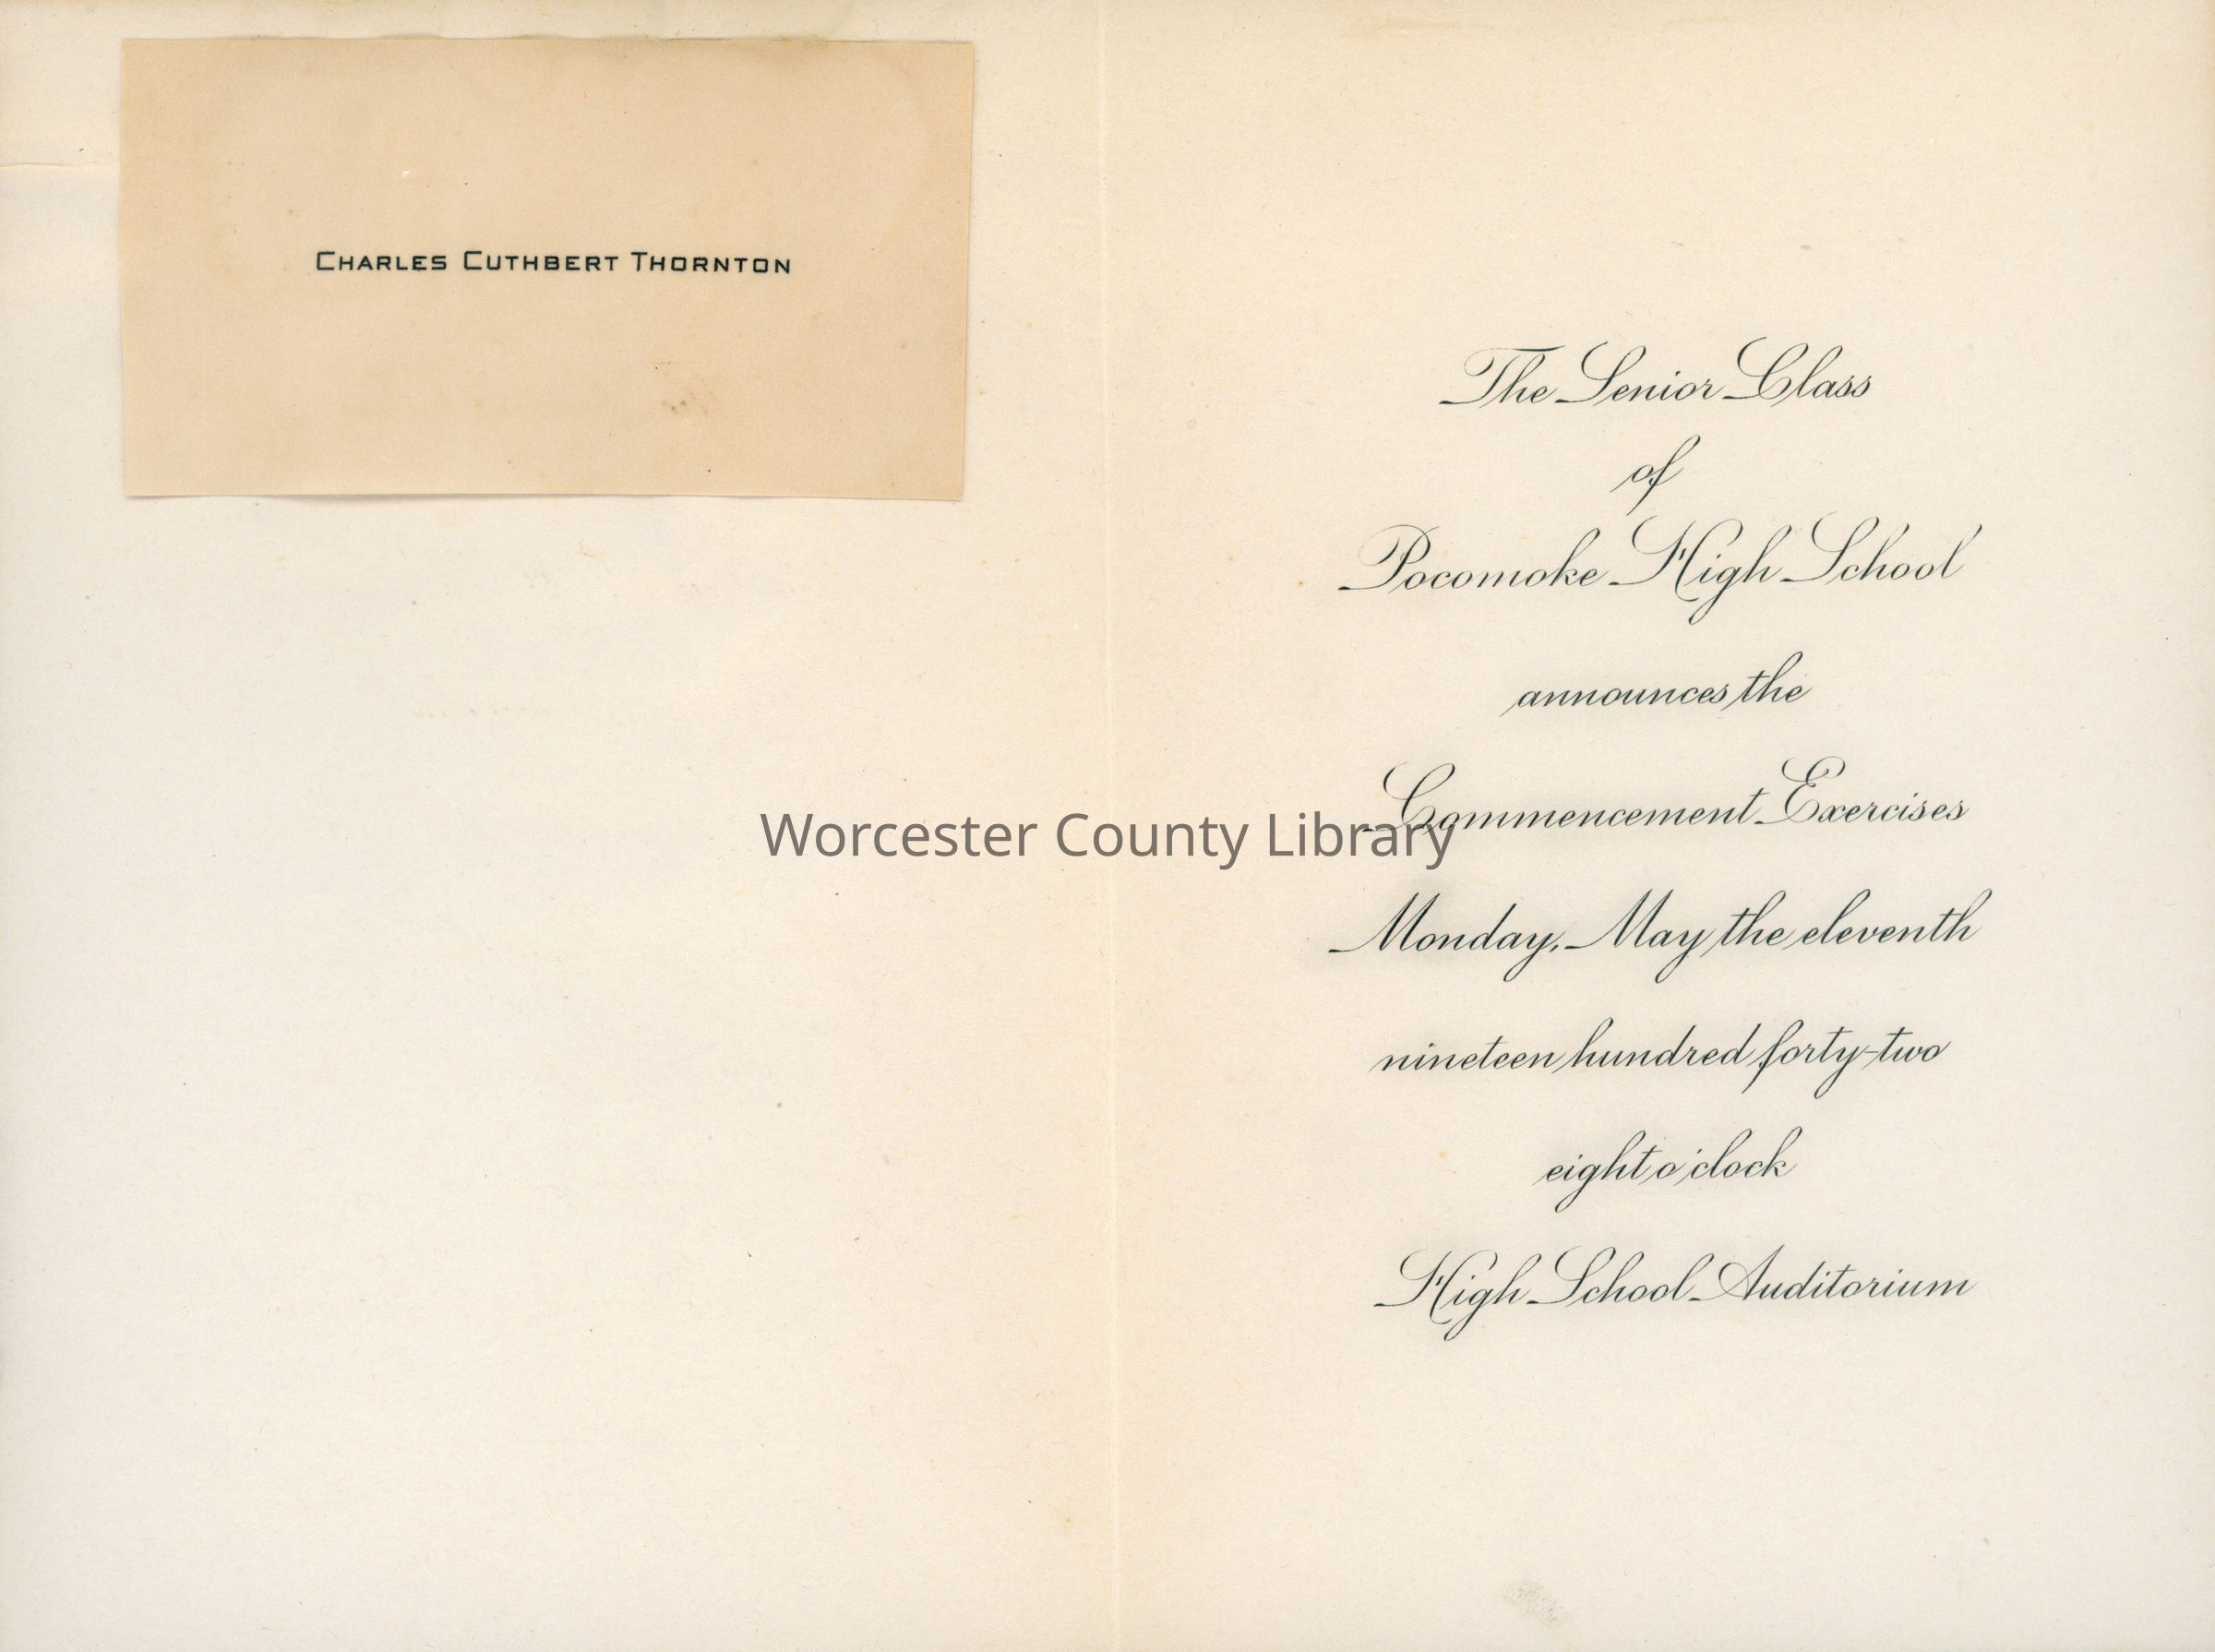 Charles Cuthbert Thornton
The Senior Class
of
Pocomoke High School
announces the
Commencement Exercises
Worcester County Library
Monday, May the eleventh
nineteen hundred forty-two
eight o'clock
High School Auditorium